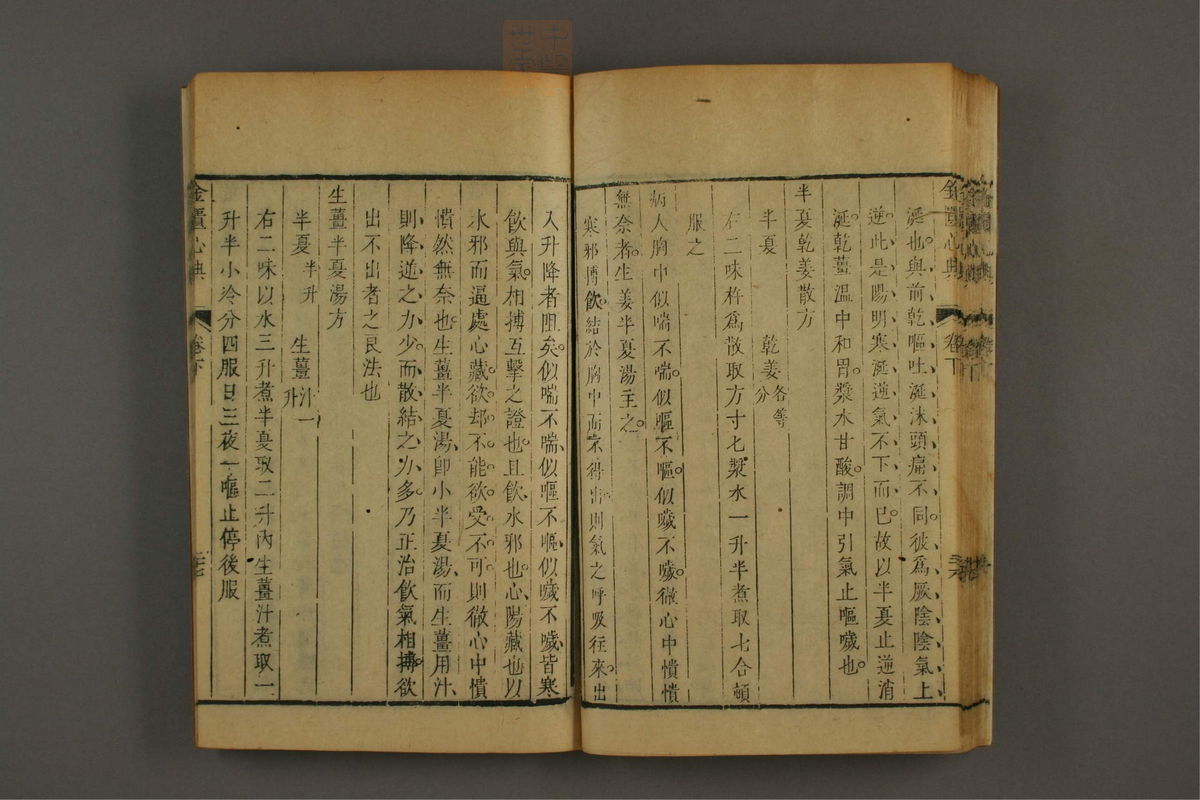 涎也與前乾嘔吐涎沫頭痛不同彼爲厥陰陰氣上
逆此是陽明寒涎逆氣不下而已故以半夏止逆消
涎乾薑溫中和胃漿水甘酸調中引氣止嘔噦也
半夏乾姜散方
半夏 乾姜各等分
右二味杵爲散取方寸匕漿水一升半煮取七合頓
服之
病人胸中似喘不喘似嘔不嘔似噦不噦徹心中憒憒
無奈者生姜半夏湯主之
寒邪搏飲結於胸中而不得出則氣之呼吸往來出
入升降者阻矣似喘不喘似嘔不嘔似噦不噦皆寒
飲與氣相搏互擊之證也且飲水邪也心陽藏也以
水邪而逼處心藏欲却不能欲受不可則徹心中憒
憒然無奈也生薑半夏湯卽小半夏湯而生薑用汁
則降逆之力少而散結之力多乃正治飲氣相搏欲
出不出者之良法也
生薑半夏湯方
半夏半升 生薑汁一升
右二味以水三升煮半夏取二升內生薑汁煮取一
升半小冷分四服日三夜一嘔止停後服
金匱心典 卷下 二七
金匱心典 卷下